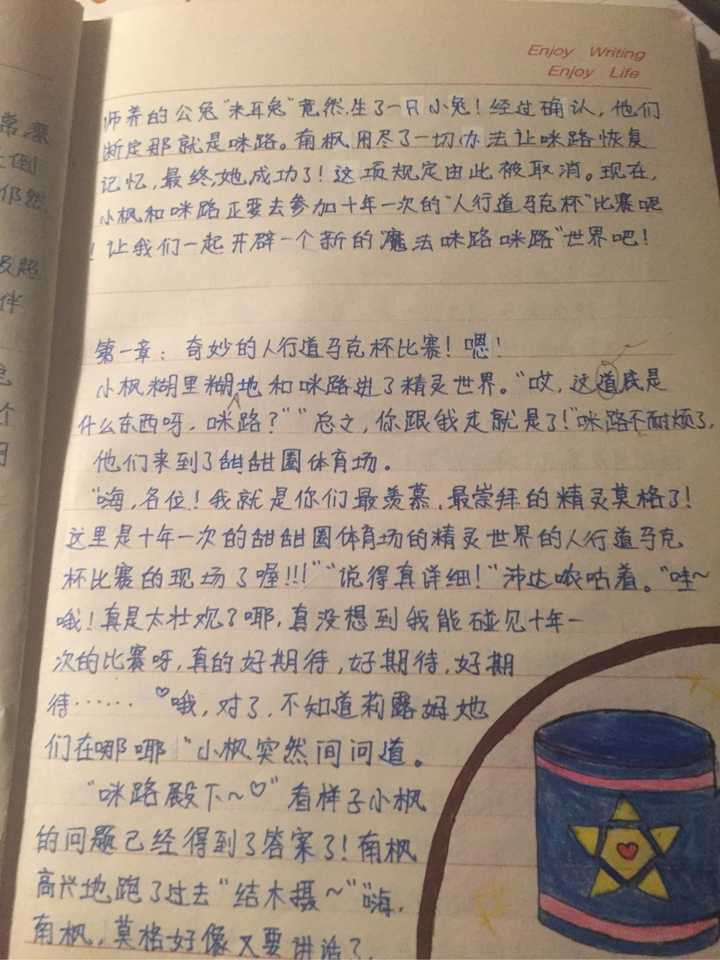 Enjoy Writing
Enjoy Life
师养的公兔"米耳兔"竟然生了一只小兔！经过确认，他们
断定那就是咪路。南枫用尽了一切办法让咪路恢复
记忆，最终她成功了！这项规定由此被取消。现在，
小枫和咪路正要去参加十年一次的"人行道马克杯"比赛呢
！让我们一起开辟一个新的"魔法咪路咪路"世界吧！
第一章：奇妙的人行道马克杯比赛！嗯！
小枫糊里糊地和咪路进了精灵世界。"哎，这道底是
什么东西呀，咪路？""总之，你跟我走就是了！"咪路不耐烦了，
他们来到了甜甜圈体育场。
"嗨，各位！我就是你们最羡慕，最崇拜的精灵莫格了！
这里是十年一次的甜甜圈体育场的精灵世界的人行道马克
杯比赛的现场了喔!!!""说得真详细！"沛达哝咕着。"哇~
哦！真是太壮观了耶，真没想到我能碰见十年一
次的比赛呀，真的好期待，好期待，好期
待……♡哦，对了，不知道莉露姆她
们在哪耶"小枫突然间问道。
"咪路殿下~♡"看样子小枫
的问题已经得到了答案了！南枫
高兴地跑了过去"结木摄~""嗨，
南枫，莫格好像又要讲话了，